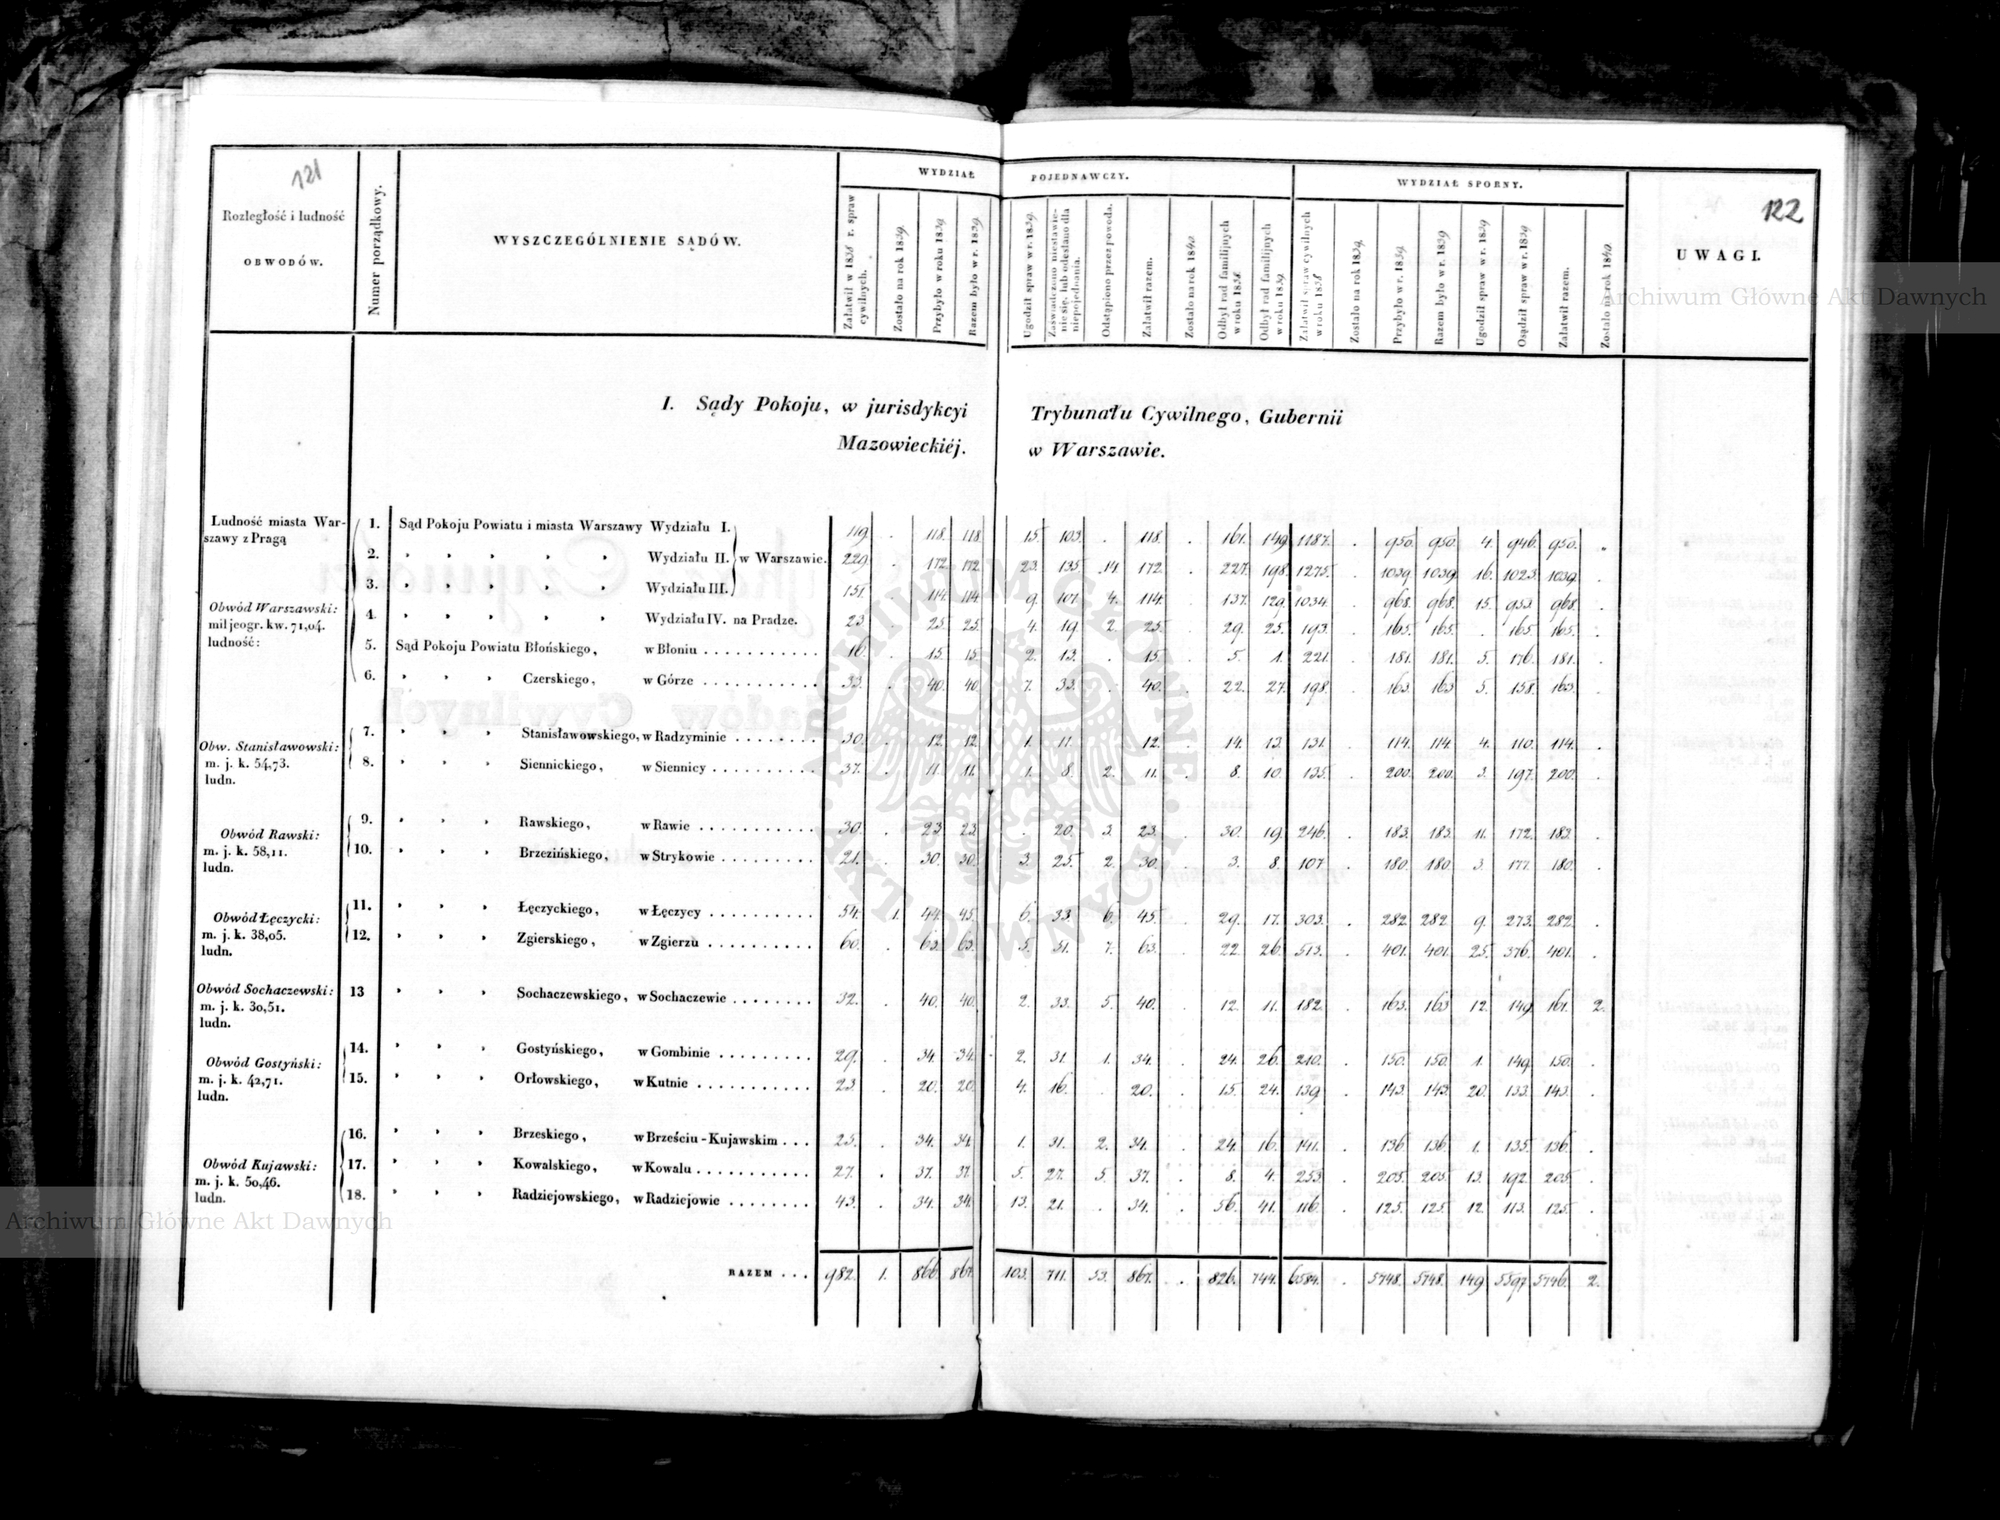 121
122
Rozległość i ludność
OBWODÓW.
Numer porządkowy.
WYSZCZEGÓLNIENIE SĄDÓW.
WYDZIAŁ POJEDNAWCZY.
WYDZIAŁ SPORNY.
UWAGI.
Załatwił w 1838 r. spraw cywilnych.
Zostało na rok 1839.
Przybyło w roku 1839
Razem było w r. 1839.
Ugodził spraw w r. 1839.
Zaświadczono niestawienie się, lub odesłano dla niepojednania.
Odstąpiono przez powoda.
Załatwił razem.
Zostało na rok 1840
Odbył rad familijnych w roku 1838.
Odbył rad familijnych w roku 1839.
Załatwił spraw cywilnych w roku 1838
Zostało na rok 1839.
Przybyło w r. 1839.
Razem było w r. 1839
Ugodził spraw w r. 1839
Osądził spraw w r. 1839
Załatwił razem.
Zostało na rok 1840.
Archiwum Główne Akt Dawnych
I. Sądy Pokoju, w jurisdykcyi Trybunału Cywilnego, Gubernii
Mazowieckiéj. w Warszawie.
Ludność miasta War-
szawy z Pragą
Obwód Warszawski:
mil jeogr. kw. 71,04.
ludność:
1. Sąd Pokoju Powiatu i miasta Warszawy Wydziału I. 119. . 118. 118. 15. 103. . 118. . 161. 149. 1187. . 950. 950. 4. 946. 950. „
2. „ „ „ „ „ Wydziału II. w Warszawie. 229. . 172. 172. 23. 135. 14. 172. . 227. 198. 1275. . 1039. 1039. 16. 1023. 1039. .
3. „ „ „ „ „ Wydziału III. 151. . 114. 114. 9. 101. 4. 114. . 137. 129. 1034. . 968. 968. 15. 953. 968. .
4. „ „ „ „ „ Wydziału IV. na Pradze. 23. . 25. 25. 4. 19. 2. 25. . 29. 25. 193. . 165. 165. . 165. 165. .
5. Sąd Pokoju Powiatu Błońskiego, w Błoniu . . . 16. . 15. 15. 2. 13. . 15. . 5. 1. 221. . 181. 181. 5. 176. 181. .
6. „ „ „ Czerskiego, w Górze . . . 33. . 40. 40. 7. 33. . 40. . 22. 27. 198. . 163. 163 5. 158. 163. .
Obw. Stanisławowski:
m. j. k. 54,73.
ludn.
7. „ „ „ Stanisławowskiego, w Radzyminie . . . 30. . 12. 12. 1. 11. . 12. . 14. 13. 131. . 114. 114. 4. 110. 114. .
8. „ „ „ Siennickiego, w Siennicy . . . 37. . 11. 11. 1. 8. 2. 11. . 8. 10. 135. . 200. 200. 3. 197. 200. .
Obwód Rawski:
m. j. k. 58,11.
ludn.
9. „ „ „ Rawskiego, w Rawie . . . 30. . 23. 23. . 20. 3. 23. . 30. 19. 246. . 183. 183. 11. 172. 183. .
10. „ „ „ Brzezińskiego, w Strykowie . . . 21. . 30. 30. 3. 25. 2. 30. . 3. 8. 107. . 180. 180. 3. 177. 180. .
Obwód Łęczycki:
m. j. k. 38,05.
ludn.
11. „ „ „ Łęczyckiego, w Łęczycy . . . 54. 1. 44. 45. 6. 33. 6. 45. . 29. 17. 303. . 282. 282. 9. 273. 282. .
12. „ „ „ Zgierskiego, w Zgierzu . . . 60. . 63. 63. 5. 51. 7. 63. . 22. 26. 513. . 401. 401. 25. 376. 401. .
Obwód Sochaczewski:
m. j. k. 30,51.
ludn.
13 „ „ „ Sochaczewskiego, w Sochaczewie . . . 32. . 40. 40. 2. 33. 5. 40. . 12. 11. 182. . 163. 163 12. 149. 161. 2.
Obwód Gostyński:
m. j. k. 42,71.
ludn.
14. „ „ „ Gostyńskiego, w Gombinie . . . 29. . 34. 34. 2. 31. 1. 34. . 24. 26. 210. . 150. 150. 1. 149. 150. .
15. „ „ „ Orłowskiego, w Kutnie . . . 23 . 20. 20. 4. 16. . 20. . 15. 24. 139 . 143. 143. 20. 133. 143. .
Obwód Kujawski:
m. j. k. 50,46.
ludn.
16. „ „ „ Brzeskiego, w Brześciu-Kujawskim . . . 25. . 34. 34. 1. 31. 2. 34. . 24. 16. 141. . 136. 136. 1. 135. 136. .
17. „ „ „ Kowalskiego, w Kowalu . . . 27. . 37. 37. 5. 27. 5. 37. . 8. 4. 253. . 205. 205. 13. 192. 205. .
18. „ „ „ Radziejowskiego, w Radziejowie . . . 43. . 34. 34. 13. 21. . 34. . 56. 41. 116. . 125. 125. 12. 113. 125. .
Archiwum Główne Akt Dawnych
RAZEM . . . 982. 1. 866. 867. 103. 711. 53. 867. . 826. 744. 6584. . 5748. 5748. 149 5597 5746. 2.
ARCHIWUM GŁÓWNE AKT DAWNYCH